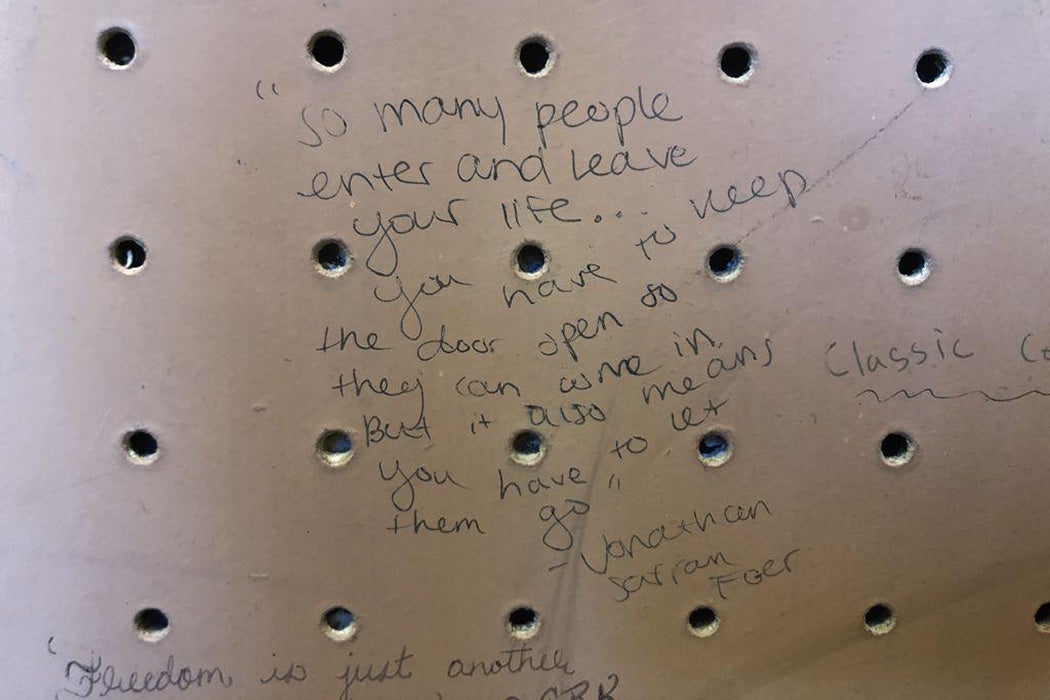 "So many people
enter and leave
your life... 
you have to keep
the door open so
they can come in.
But it also means
you have to let
them go"
- Jonathan
Safran Foer
Classic
"Freedom is just another